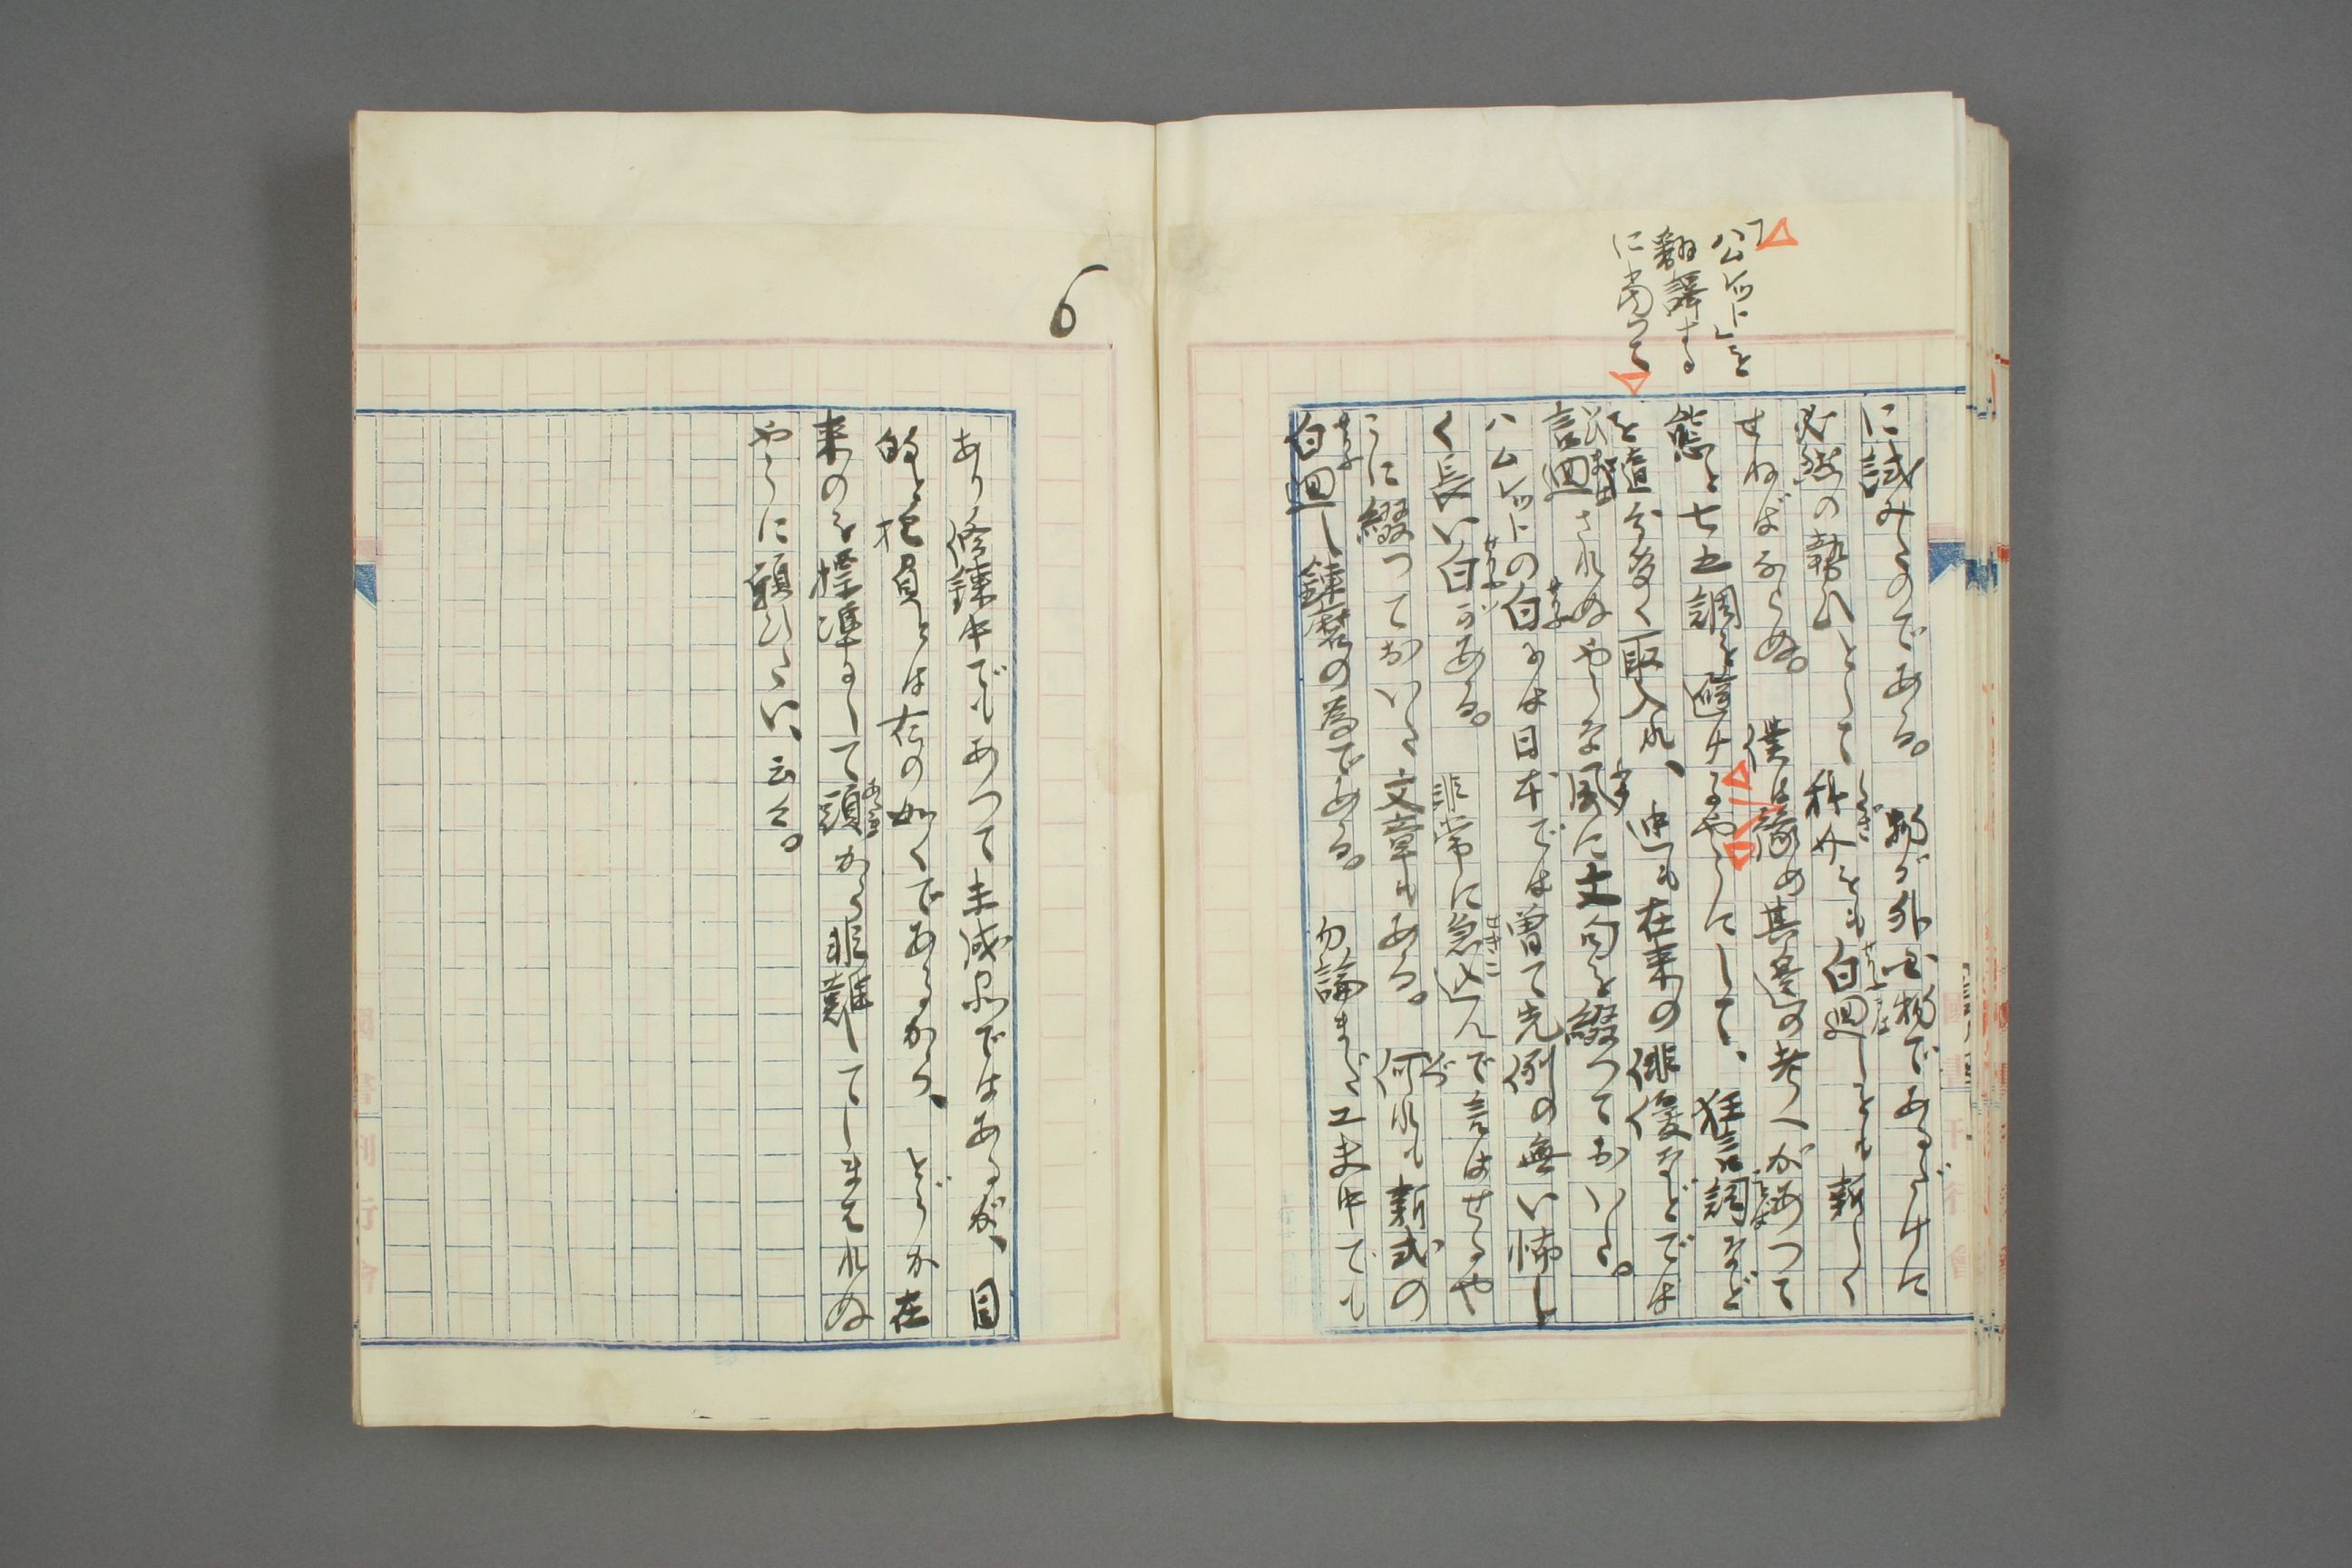 「ハムレット」を
翻譯する
に當つて
に試みたのである。物が外國物であるだけに
必然の勢ひとして科介をも白廻しをも新しく
せねばならぬ。僕は豫め其邊の考へがあつて
態と七五調を避けるやうにして、狂言詞など
を適宜多く取入れ、迚も在來の俳優などでは
言廻されぬやうな風に文句を綴つておいた。
ハムレットの白には日本では曾て先例の無い怖し
く長い白がある。非常に急込んで言はせるや
うに綴つておいた文章もある。何れも新式の
白廻し鍊磨の為である。勿論まだ工夫中でも
6
あり修鍊中でもあつて未成品ではあるが、目
的と抱負とは右の如くであるから、どうか在
來のを標準にして頭から非難してしまはれぬ
やうに願ひたい、云々。